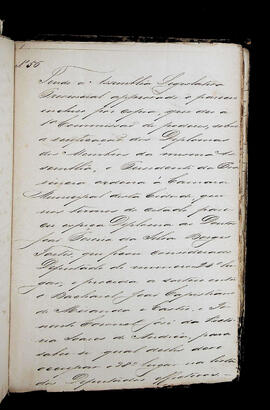 Nº 56
Tendo a Assemblea Legislativa
Provincial approvado o parecer
incluso por copia, que deo a
1ª Commissão de poderes, sobre
a verificação dos Diplomas
dos Membros da mesma As-
semblea, o Presidente da Pro-
vincia ordena á Camara
Municipal desta Cidade, que
nos termos do citado parecer
expeça Diploma ao Doutor
José Torres da Silva
que foi considerado
Deputado de numero 24º lu-
gar, e proceda a sorteio entre
o Bacharel José Capistrano
de Miranda e Castro, e Te-
nente Coronel José da
Soares de Andréa, para
saber se qual delles deve
occupar o 28º lugar na lista
dos Deputados effectivos.